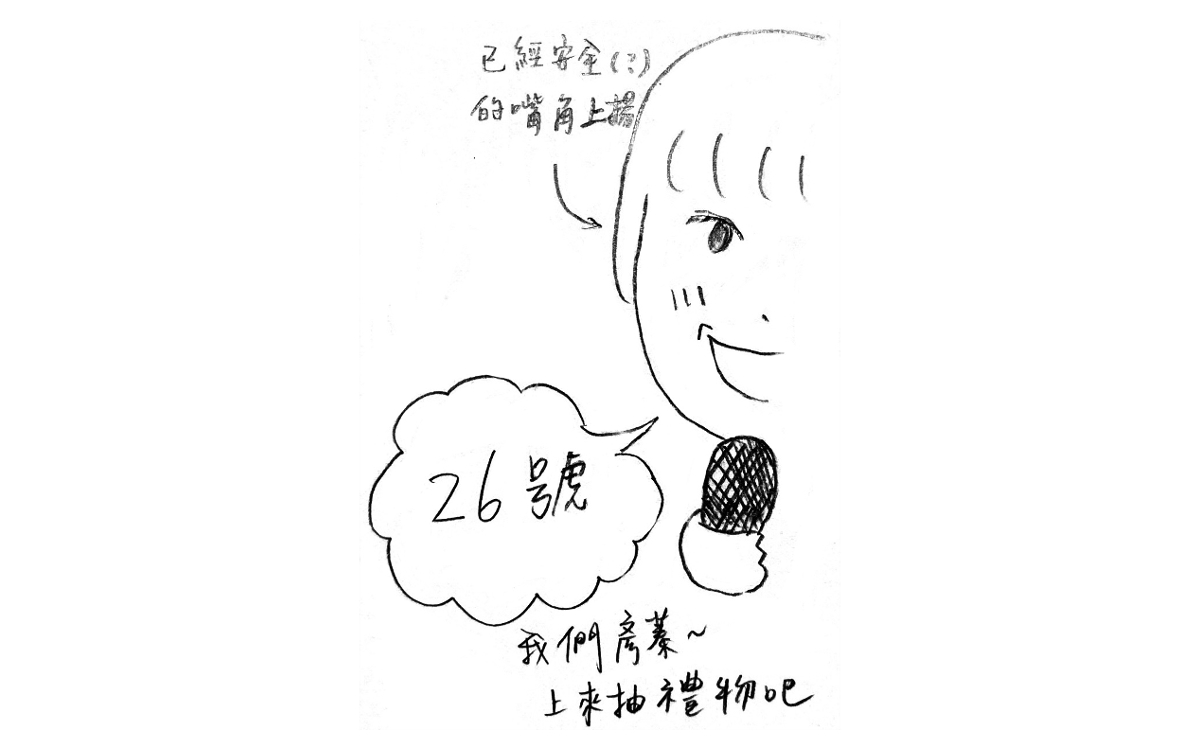 已經安全(?)
的嘴角上揚
26號
我們彥蓁~
上來抽禮物吧